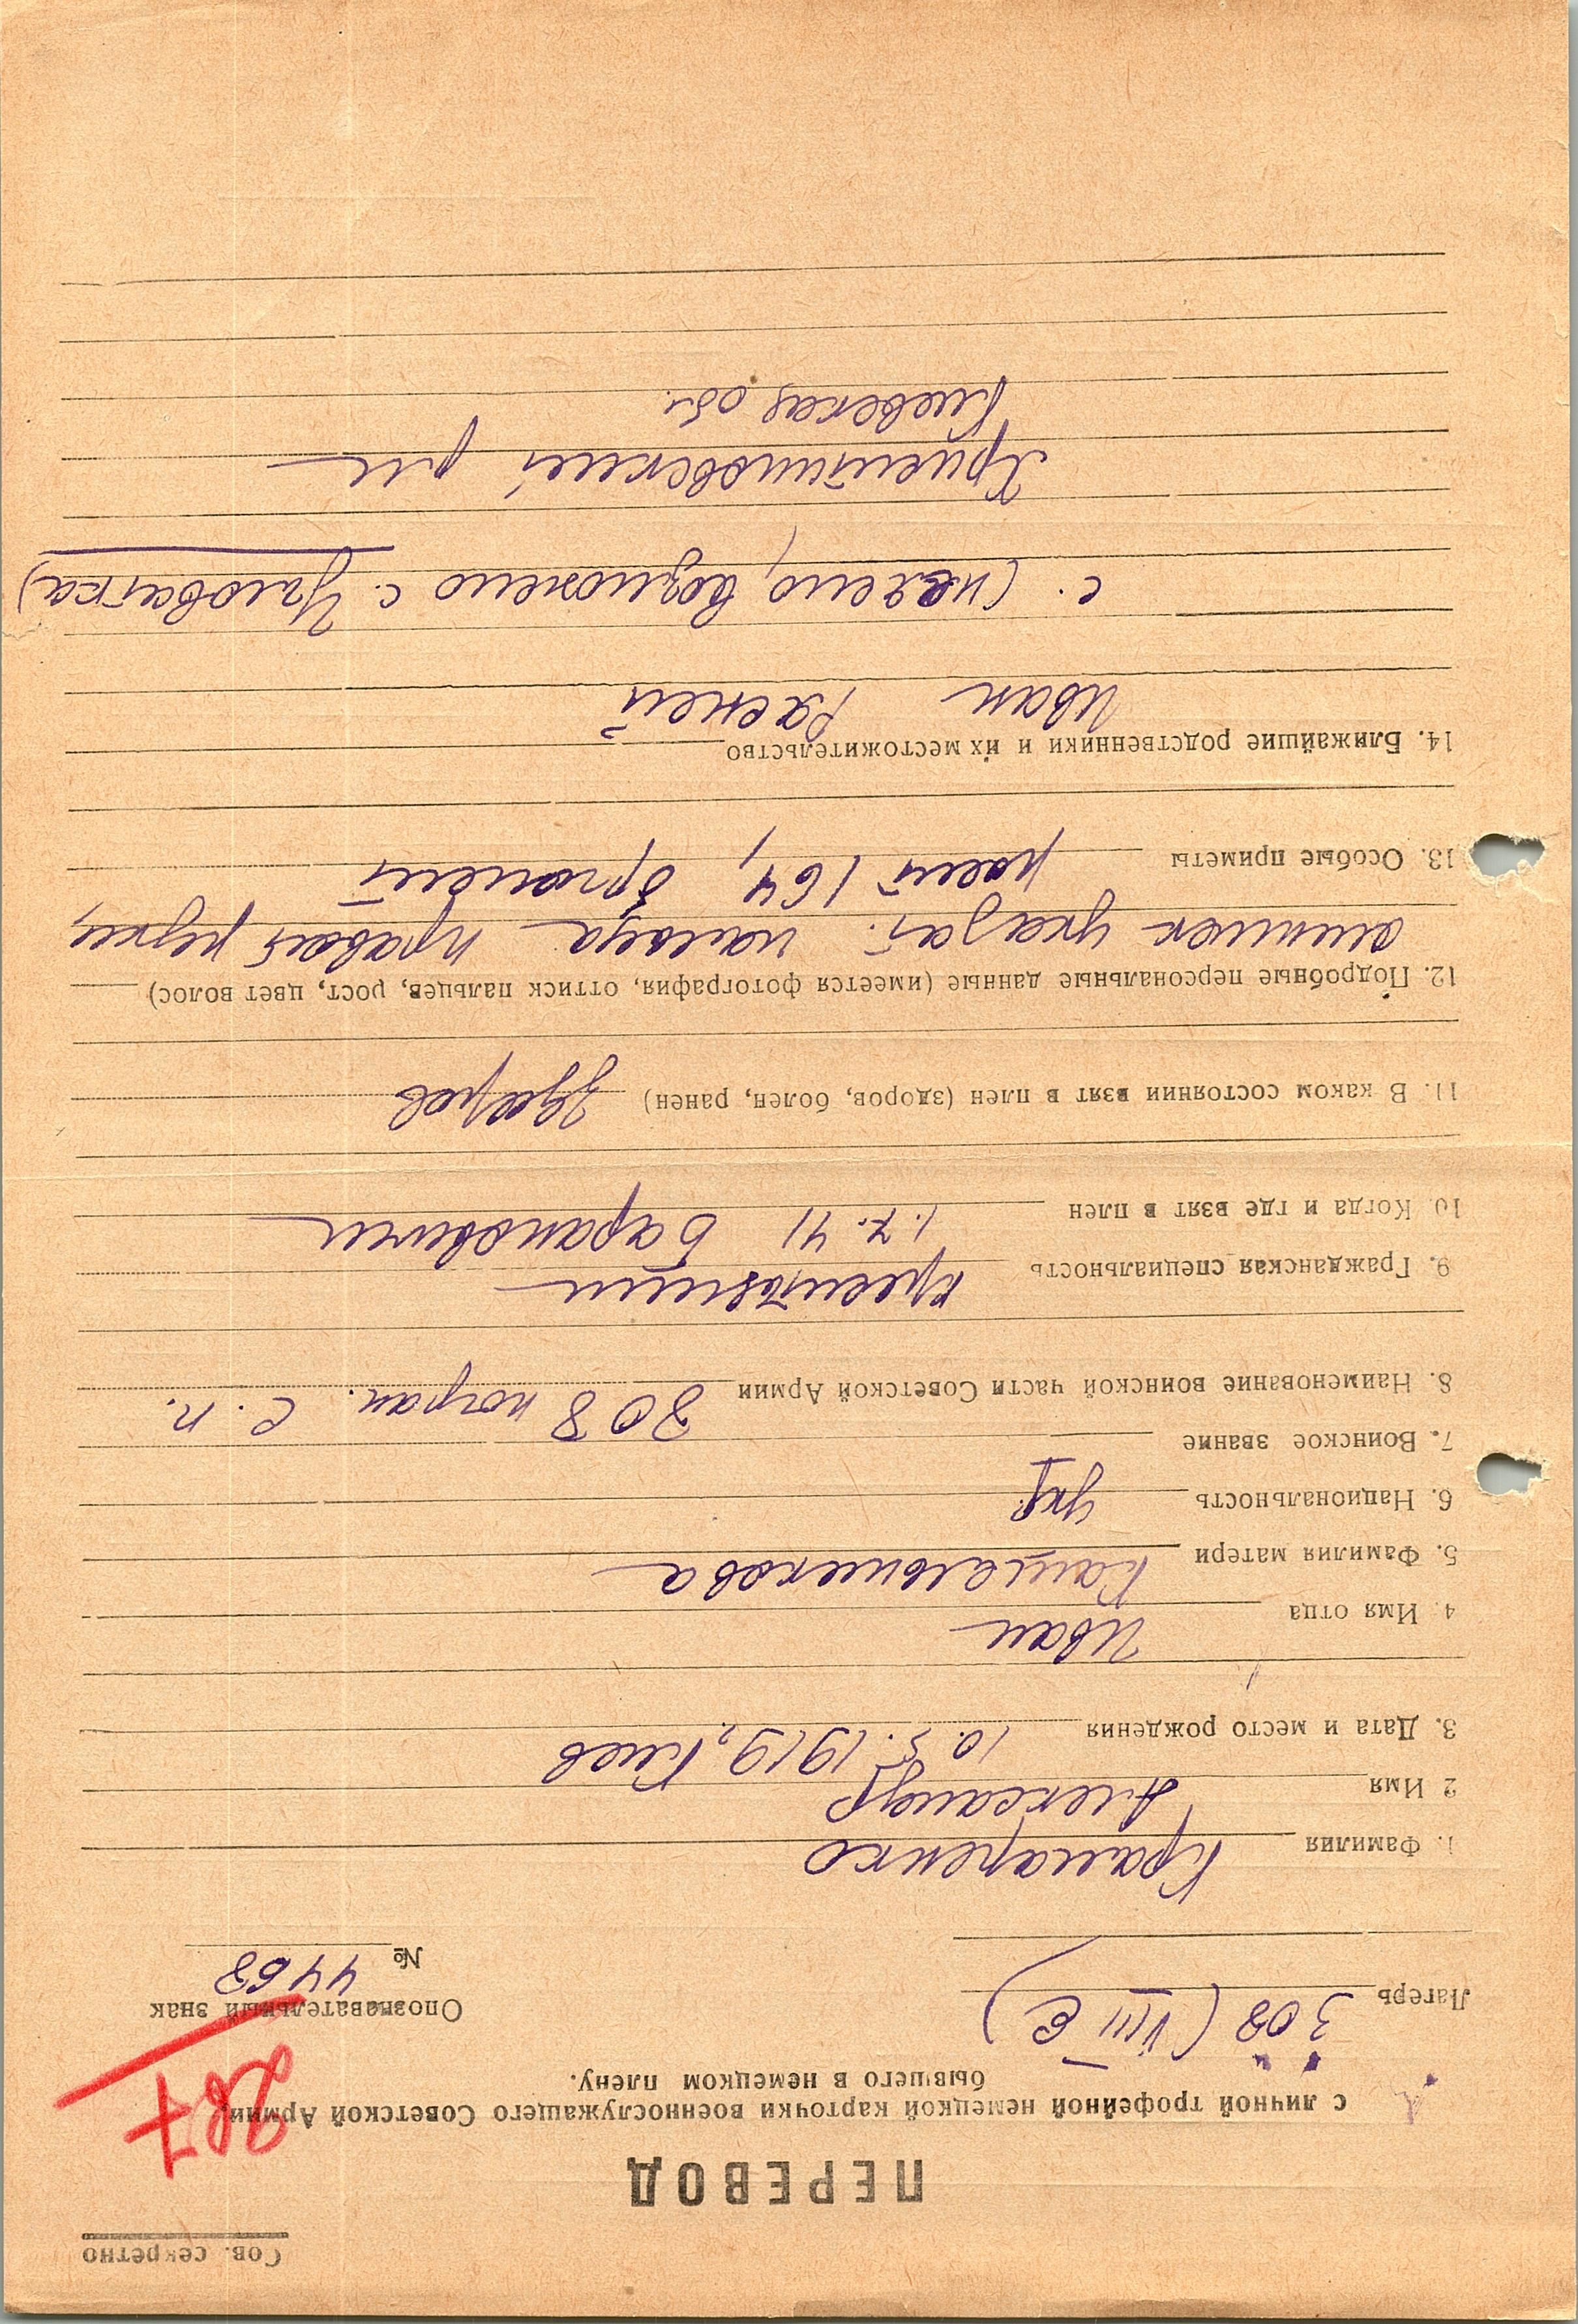 Сов. секретно
ПЕРЕВОД
с личной трофейной немецкой карточки военнослужащего Советской Армии,
бывшего в немецком плену.
267
Лагерь 308 (VIII E)
Опознавательный знак
№ 4468
1. Фамилия Крамаренко
2 Имя Александр
3. Дата и место рождения 10.5.1919, Киев
4. Имя отца Иван
5. Фамилия матери
6. Национальность укр
7. Воинское звание
8. Наименование воинской части Советской Армии 308 погран. с. п.
9. Гражданская специальность крестьянин
10. Когда и где взят в плен 1.7.41 Барановичи
11. В каком состоянии взят в плен (здоров, болен, ранен) здоров
12. Подробные персональные данные (имеется фотография, оттиск пальцев, рост, цвет волос)
оттиск указат. пальца правой руки,
рост 164, брюнет
13. Особые приметы
14. Ближайшие родственники и их местожительство
Иван
с. (неясно, возможно с.
Христиновский р-н
Киевская обл.